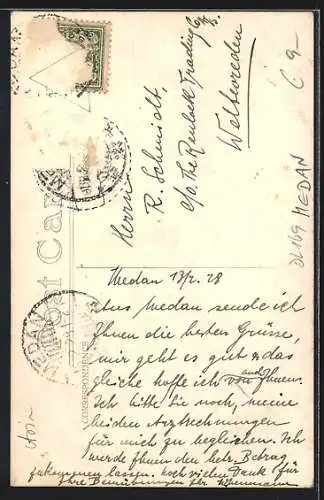 Herrn
R. Schmidt,
c/o. The Renbeck Trading Co
Weltevreden
Post Card
CORRESPONDENCE
MEDAN
Medan 13/2. 28
Aus Medan sende ich
Ihnen die besten Grüsse,
mir geht es gut & das
gleiche hoffe ich auch von Ihnen.
Ich bitte Sie noch, meine
beiden Arztrechnungen
für mich zu begleichen. Ich
werde Ihnen den betr. Betrag
zukommen lassen. Noch vielen Dank für
Ihre Bemühungen Ihr
Asien
DL 169 MEDAN
C 9-